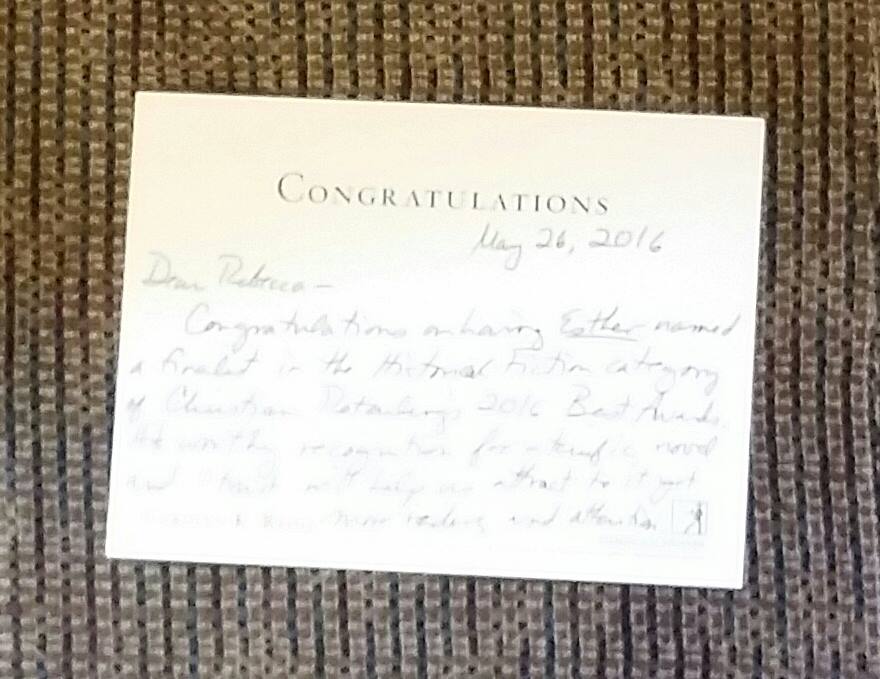 CONGRATULATIONS
May 26, 2016
Dear Rebecca —
Congratulations on having Esther named
a finalist in the Historical Fiction category
of Christian Retailing's 2016 Best Awards.
worthy recognition for a terrific novel
and will help us attract to it yet
more readers and attention.